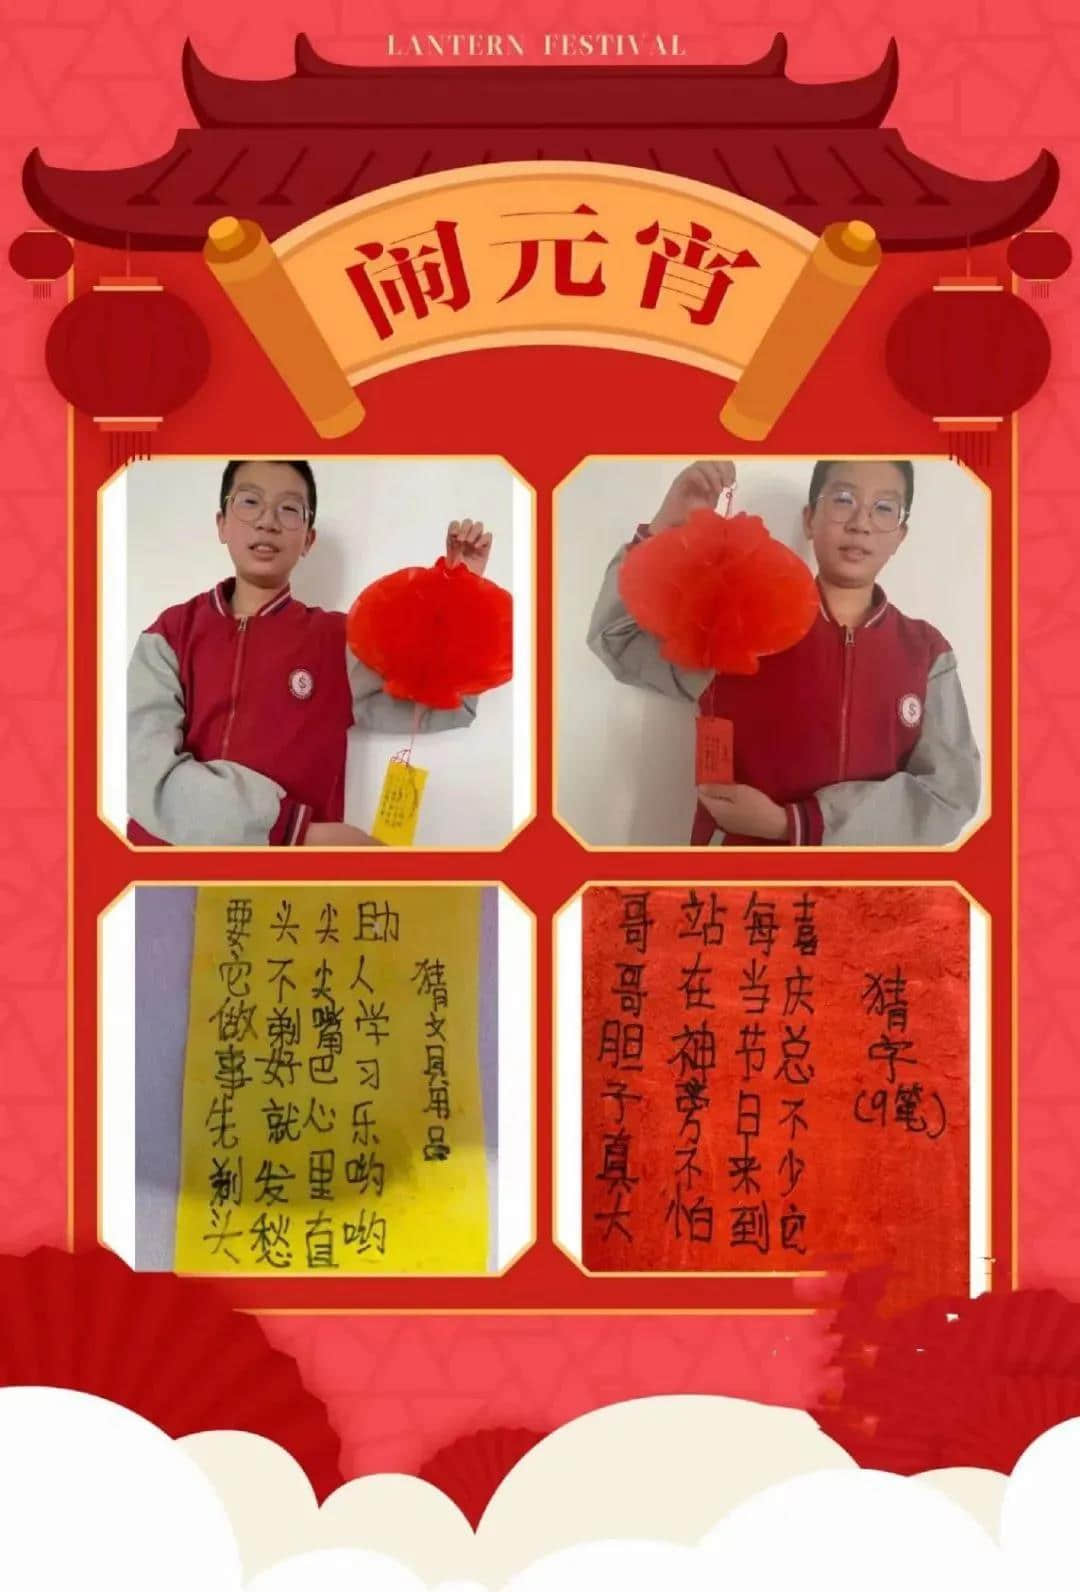 LANTERN FESTIVAL
闹元宵
要它做事先剃头
头不剃好就发愁
尖尖嘴巴心里直
助人学习乐哟哟
猜文具用品
哥哥胆子真大
站在神旁不怕
每当节日来到
喜庆总不少它
猜字
(9笔)